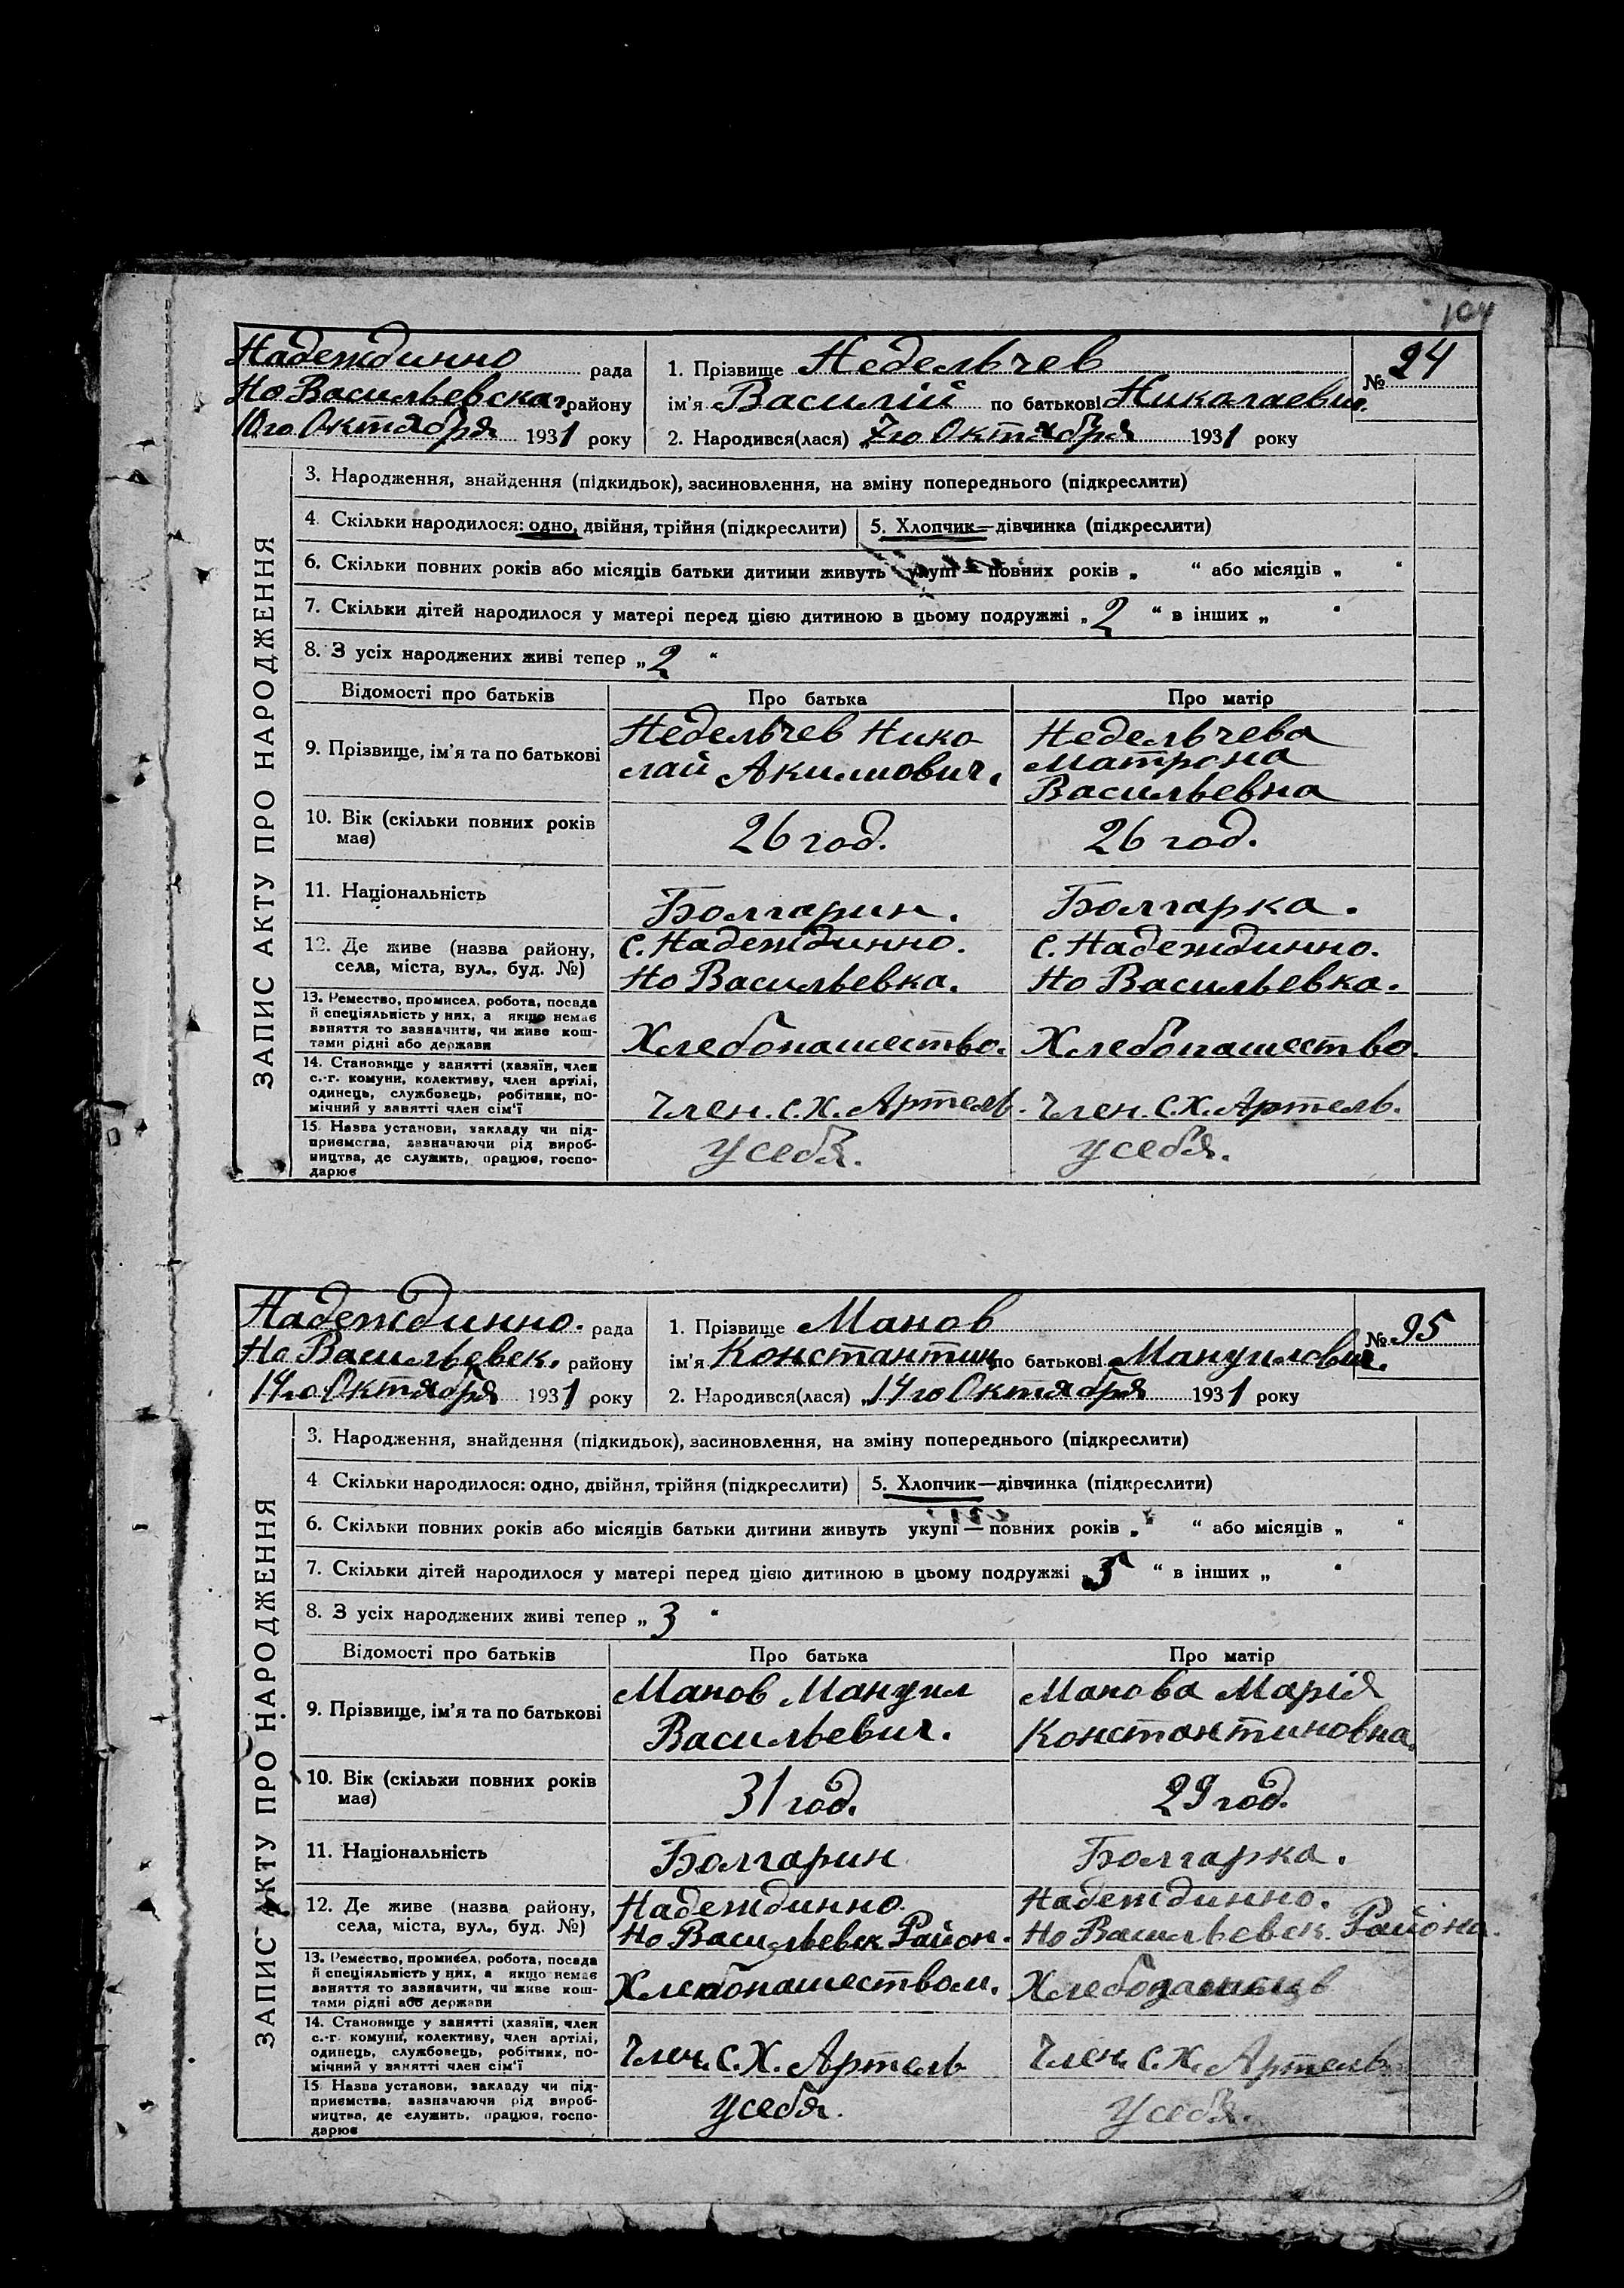 104
Надеждинно рада
Но Васильевскаг. району
10го Октября 1931 року
1. Прізвище Недельчев
ім'я Василій по батькові Николаевич.
2. Народився(лася) „7го Октября 1931 року
№ 94
ЗАПИС АКТУ ПРО НАРОДЖЕННЯ
3. Народження, знайдення (підкидьок), засиновлення, на зміну попереднього (підкреслити)
4. Скільки народилося: одно, двійня, трійня (підкреслити) 5. Хлопчик—дівчинка (підкреслити)
6. Скільки повних років або місяців батьки дитини живуть укупі — повних років „ “ або місяців „ “
7. Скільки дітей народилося у матері перед цією дитиною в цьому подружжі „2 “ в інших „ “
8. З усіх народжених живі тепер „2 “
Відомості про батьків Про батька Про матір
9. Прізвище, ім'я та по батькові
Недельчев Нико
лай Акимович.
Недельчева
Матрона
Васильевна
10. Вік (скільки повних років
має)
26 год.
26 год.
11. Національність
Болгарин.
Болгарка.
12. Де живе (назва району,
села, міста, вул., буд. №)
С. Надеждинно.
Но Васильевка.
С. Надеждинно.
Но Васильевка.
13. Ремество, промисел, робота, посада
й спеціяльність у них, а якщо немає
заняття то зазначити, чи живе кош-
тами рідні або держави
Хлебопашество.
Хлебопашество.
14. Становище у занятті (хазяїн, член
с.-г. комуни, колективу, член артілі,
одинець, службовець, робітник, по-
мічний у занятті член сім'ї
Член. С.Х. Артель.
Член. С.Х. Артель.
15. Назва установи, закладу чи під-
приємства, зазначаючи рід вироб-
ництва, де служить, працює, госпо-
дарює
у себя.
у себя.
Надеждинно. рада
Но Васильевск. району
14го Октября 1931 року
1. Прізвище Манов
ім'я Константин по батькові Мануилович.
2. Народився(лася) „14го Октября 1931 року
№ 95
ЗАПИС АКТУ ПРО НАРОДЖЕННЯ
3. Народження, знайдення (підкидьок), засиновлення, на зміну попереднього (підкреслити)
4 Скільки народилося: одно, двійня, трійня (підкреслити) 5. Хлопчик—дівчинка (підкреслити)
6. Скільки повних років або місяців батьки дитини живуть укупі — повних років „ “ або місяців „ “
7. Скільки дітей народилося у матері перед цією дитиною в цьому подружжі „ “ в інших „ “
8. З усіх народжених живі тепер „3 “
Відомості про батьків Про батька Про матір
9. Прізвище, ім'я та по батькові
Манов Мануил
Васильевич.
Манова Марія
Константиновна.
10. Вік (скільки повних років
має)
31 год.
29 год.
11. Національність
Болгарин
Болгарка.
12. Де живе (назва району,
села, міста, вул., буд. №)
Надеждинно.
Но Васильевск Район.
Надеждинно.
Но Васильевск. Района.
13. Ремество, промисел, робота, посада
й спеціяльність у них, а якщо немає
заняття то зазначити, чи живе кош-
тами рідні або держави
Хлебопашеством.
14. Становище у занятті (хазяїн, член
с.-г. комуни, колективу, член артілі,
одинець, службовець, робітник, по-
мічний у занятті член сім'ї
Член. С.Х. Артель
Член. С.Х. Артель.
15. Назва установи, закладу чи під-
приємства, зазначаючи рід вироб-
ництва, де служить, працює, госпо-
дарює
у себя.
у себя.